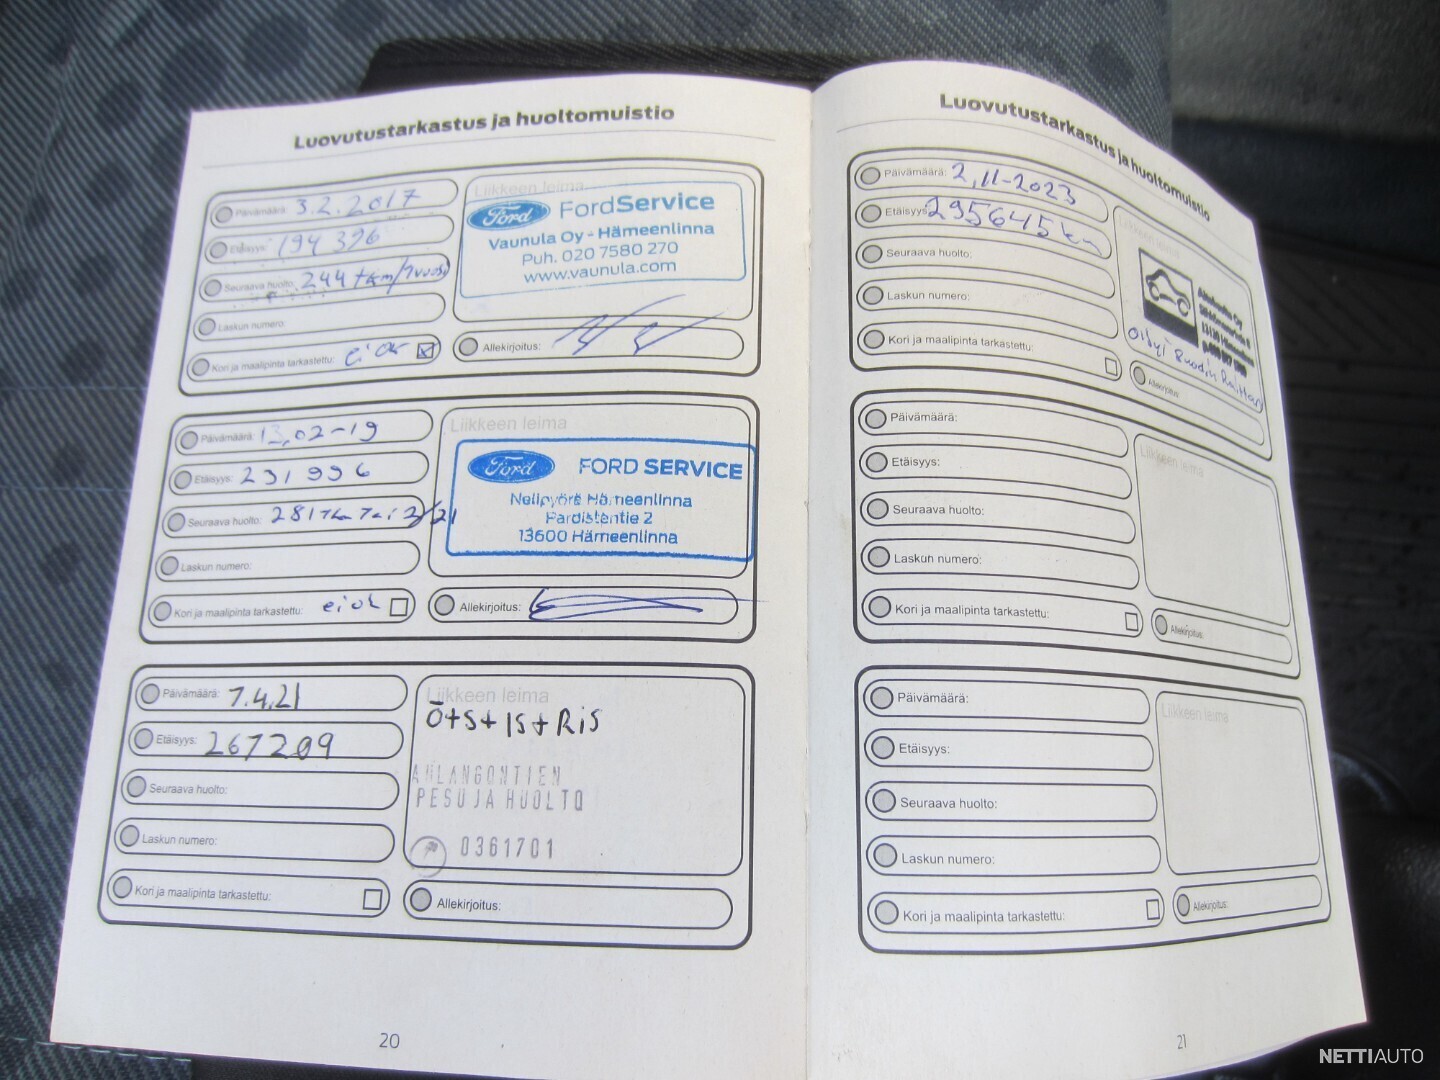 Luovutustarkastus ja huoltomuistio
Päivämäärä: 3.2.2017
Etäisyys: 194 396
Seuraava huolto: 244 tkm/1vuosi
Laskun numero:
Kori ja maalipinta tarkastettu: ei ok
Liikkeen leima
Ford FordService
Vaunula Oy - Hämeenlinna
Puh. 020 7580 270
www.vaunula.com
Allekirjoitus:
Päivämäärä: 13,02-19
Etäisyys: 231 996
Seuraava huolto: 281 tkm Tai 2/21
Laskun numero:
Kori ja maalipinta tarkastettu: ei ok
Liikkeen leima
Ford FORD SERVICE
Nelipyörä Hämeenlinna
Pardistentie 2
13600 Hämeenlinna
Allekirjoitus:
Päivämäärä: 7.4.21
Etäisyys: 267209
Seuraava huolto:
Laskun numero:
Kori ja maalipinta tarkastettu:
Liikkeen leima
Ö+S+IS+RiS
AHLANGONTIEN
PESU JA HUOLTO
0361701
Allekirjoitus:
20
Luovutustarkastus ja huoltomuistio
Päivämäärä: 2,11-2023
Etäisyys: 295645 km
Seuraava huolto:
Laskun numero:
Kori ja maalipinta tarkastettu:
Liikkeen leima
Allekirjoitus:
Päivämäärä:
Etäisyys:
Seuraava huolto:
Laskun numero:
Kori ja maalipinta tarkastettu:
Liikkeen leima
Allekirjoitus:
Päivämäärä:
Etäisyys:
Seuraava huolto:
Laskun numero:
Kori ja maalipinta tarkastettu:
Liikkeen leima
Allekirjoitus:
21
NETTIAUTO